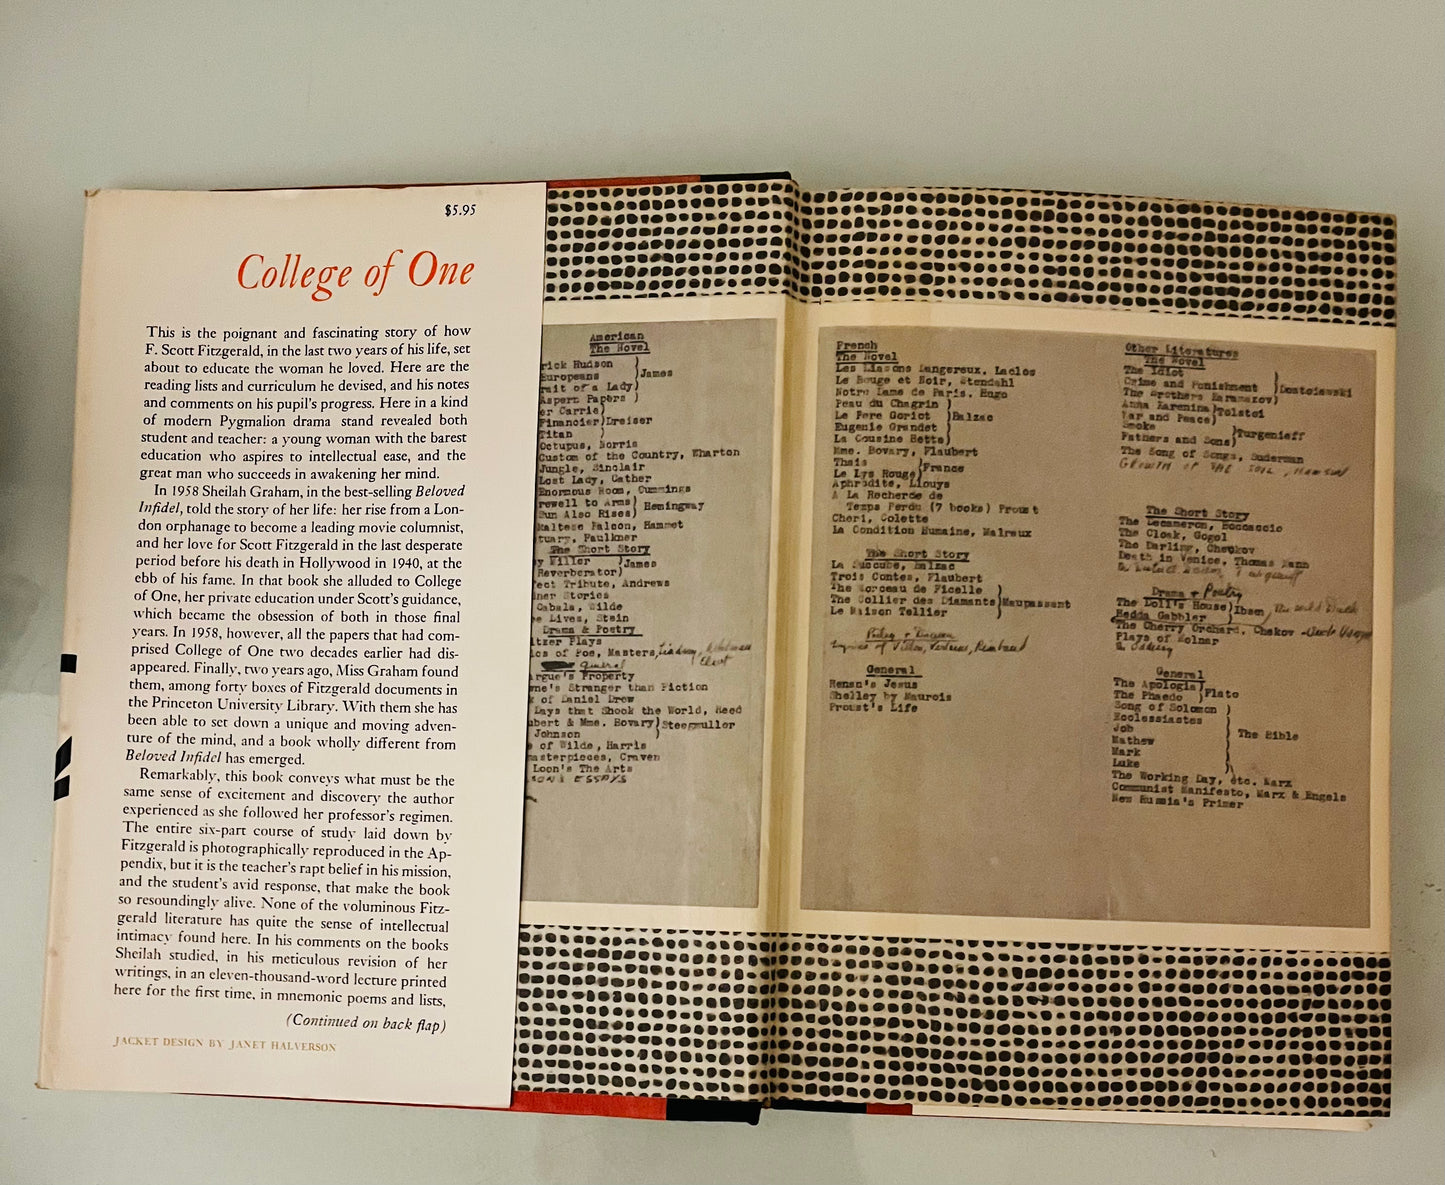 $5.95
College of One
This is the poignant and fascinating story of how
F. Scott Fitzgerald, in the last two years of his life, set
about to educate the woman he loved. Here are the
reading lists and curriculum he devised, and his notes
and comments on his pupil's progress. Here in a kind
of modern Pygmalion drama stand revealed both
student and teacher: a young woman with the barest
education who aspires to intellectual ease, and the
great man who succeeds in awakening her mind.
In 1958 Sheilah Graham, in the best-selling Beloved
Infidel, told the story of her life: her rise from a Lon-
don orphanage to become a leading movie columnist,
and her love for Scott Fitzgerald in the last desperate
period before his death in Hollywood in 1940, at the
ebb of his fame. In that book she alluded to College
of One, her private education under Scott's guidance,
which became the obsession of both in those final
years. In 1958, however, all the papers that had com-
prised College of One two decades earlier had dis-
appeared. Finally, two years ago, Miss Graham found
them, among forty boxes of Fitzgerald documents in
the Princeton University Library. With them she has
been able to set down a unique and moving adven-
ture of the mind, and a book wholly different from
Beloved Infidel has emerged.
Remarkably, this book conveys what must be the
same sense of excitement and discovery the author
experienced as she followed her professor's regimen.
The entire six-part course of study laid down by
Fitzgerald is photographically reproduced in the Ap-
pendix, but it is the teacher's rapt belief in his mission,
and the student's avid response, that make the book
so resoundingly alive. None of the voluminous Fitz-
gerald literature has quite the sense of intellectual
intimacy found here. In his comments on the books
Sheilah studied, in his meticulous revision of her
writings, in an eleven-thousand-word lecture printed
here for the first time, in mnemonic poems and lists,
(Continued on back flap)
JACKET DESIGN BY JANET HALVERSON
American
The Novel
rick Hudson
Europeans } James
rait of a Lady
Aspern Papers
er Carrie
Financier } Dreiser
Titan
Octupus, Norris
Custom of the Country, Wharton
Jungle, Sinclair
Lost Lady, Cather
Enormous Room, Cummings
rewell to Arms } Hemingway
Sun Also Rises
Maltese Falcon, Hammet
tuary, Faulkner
The Short Story
y Miller } James
Reverberator
fect Tribute, Andrews
ner Stories
Cabala, Wilde
e Lives, Stein
Drama & Poetry
itzer Plays
ics of Poe, Masters, Lindsay,
Eliot
General
argue's Property
ne's Stranger than Fiction
k of Daniel Drew
Days that Shook the World, Reed
ubert & Mme. Bovary } Steegmuller
Johnson
e of Wilde, Harris
masterpieces, Craven
Loon's The Arts
ESSAYS
French
The Novel
Les Liasons Dangereux, Laclos
Le Rouge et Noir, Stendahl
Notre Dame de Paris, Hugo
Peau du Chagrin
Le Pere Goriot } Balzac
Eugenie Grandet
La Cousine Bette
Mme. Bovary, Flaubert
Thais } France
Le Lys Rouge
Aphrodite, Llouys
A La Recherde de
Temps Perdu (7 books) Proust
Cheri, Colette
La Condition Humaine, Malreux
The Short Story
La Succube, Balzac
Trois Contes, Flaubert
The Morceau de Ficelle
The Collier des Diamants } Maupassant
Le Maison Tellier
Poetry +
Lyrics of Villon, Verlaine, Rimbaud
General
Renan's Jesus
Shelley by Maurois
Proust's Life
Other Literatures
The Novel
The Idiot
Crime and Punishment } Dostoieweki
The Brothers Karamazov
Anna Karenina } Tolstoi
War and Peace
Smoke } Turgenieff
Fathers and Sons
The Song of Songs, Suderman
GROWTH OF THE SOIL, HAMSUN
The Short Story
The Decameron, Boccaccio
The Cloak, Gogol
The Darling, Chekov
Death in Venice, Thomas Mann
Drama + Poetry
The Doll's House } Ibsen, The Wild Duck
Hedda Gabbler
The Cherry Orchard, Chekov - Uncle Vanya
Plays of Molnar
General
The Apologia } Plato
The Phaedo
Song of Solomon
Ecclesiastes
Job
Mathew } The Bible
Mark
Luke
The Working Day, etc. Marx
Communist Manifesto, Marx & Engels
New Russia's Primer